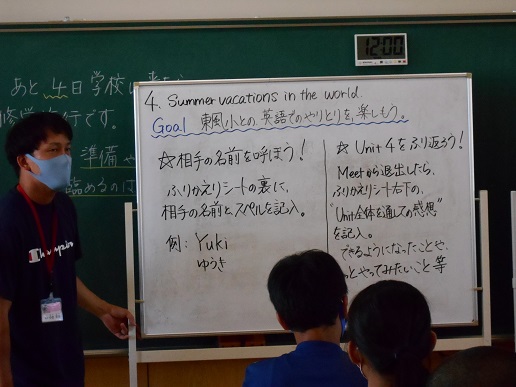 12:00
あと、4日学校に
修学旅行です。
準備や
臨めるのは
4. Summer vacations in the world
Goal 東風小との英語でのやりとりを楽しもう。
☆相手の名前を呼ぼう!
ふりかえりシートの裏に、
相手の名前とスペルを記入。
例: Yuki
ゆうき
☆ Unit 4をふり返ろう!
Meetから退出したら、
ふりかえりシート右下の、
"Unit全体を通しての感想"
を記入。
できるようになったことや、
もっとやってみたいこと等
Champion